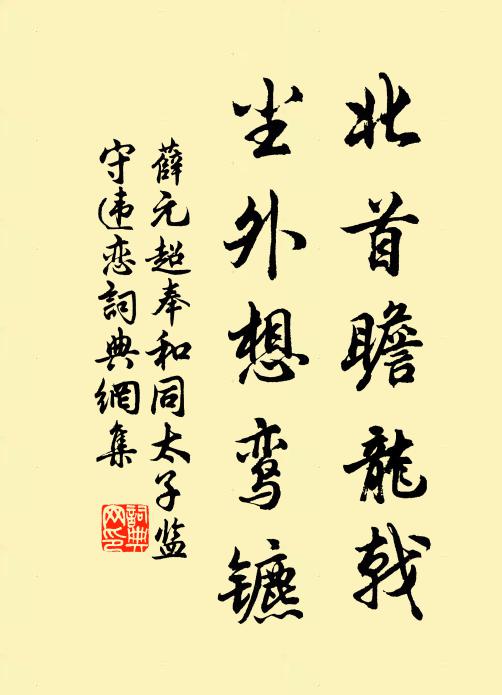 北首瞻龍戟
尘外想鸾镳
薛元超奉和同太子监
守违恋詞典網集
詞典
网印